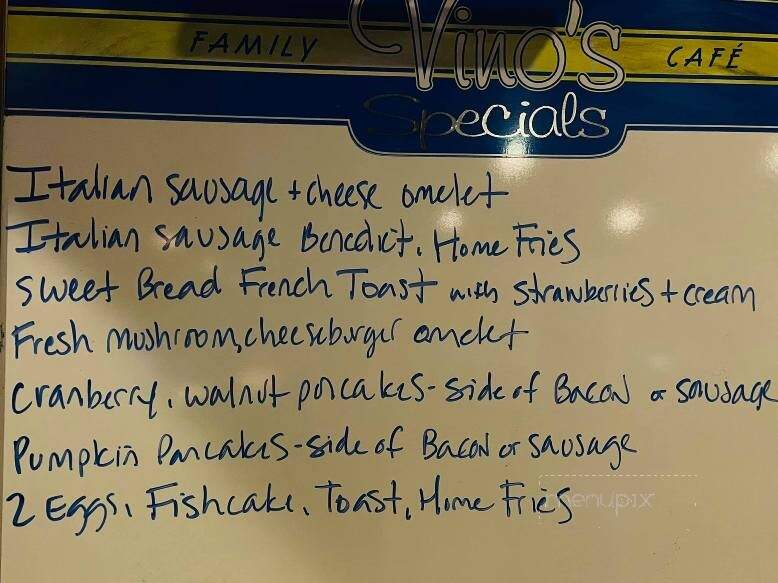 FAMILY Vino's CAFÉ
Specials
Italian sausage + cheese omelet
Italian sausage Benedict, Home Fries
Sweet Bread French Toast with strawberries + cream
Fresh mushroom, cheeseburger omelet
Cranberry, walnut pancakes - side of Bacon or sausage
Pumpkin Pancakes - side of Bacon or sausage
2 Eggs, Fishcake, Toast, Home Fries
menupix